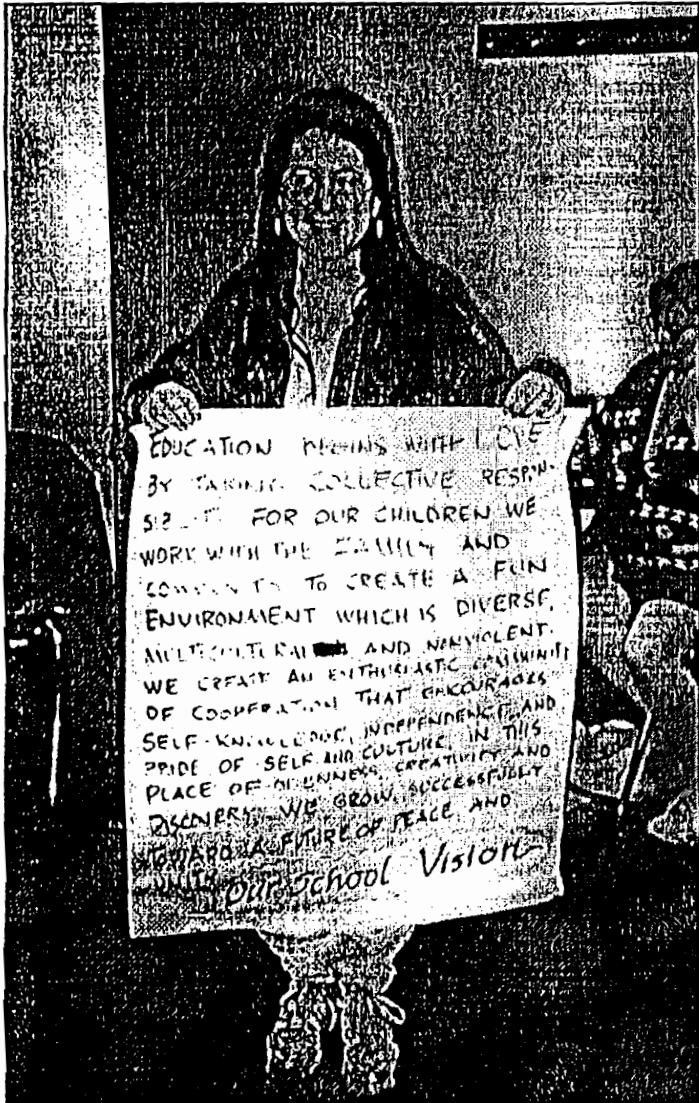 EDUCATION BEGINS WITH LOVE
BY TAKING COLLECTIVE RESPON-
FOR OUR CHILDREN WE
WORK WITH THE FAMILY AND
COMMUNITY TO CREATE A FUN
ENVIRONMENT WHICH IS DIVERSE,
MULTICULTURAL AND NONVIOLENT.
WE CREATE AN ENTHUSIASTIC COMMUNITY
OF COOPERATION THAT ENCOURAGES
SELF-KNOWLEDGE, INDEPENDENCE, AND
PRIDE OF SELF AND CULTURE. IN THIS
PLACE OF OPENNESS, CREATIVITY AND
DISCOVERY, WE GROW SUCCESSFULLY
TOWARD A FUTURE OF PEACE AND
UNITY.
Our School Vision